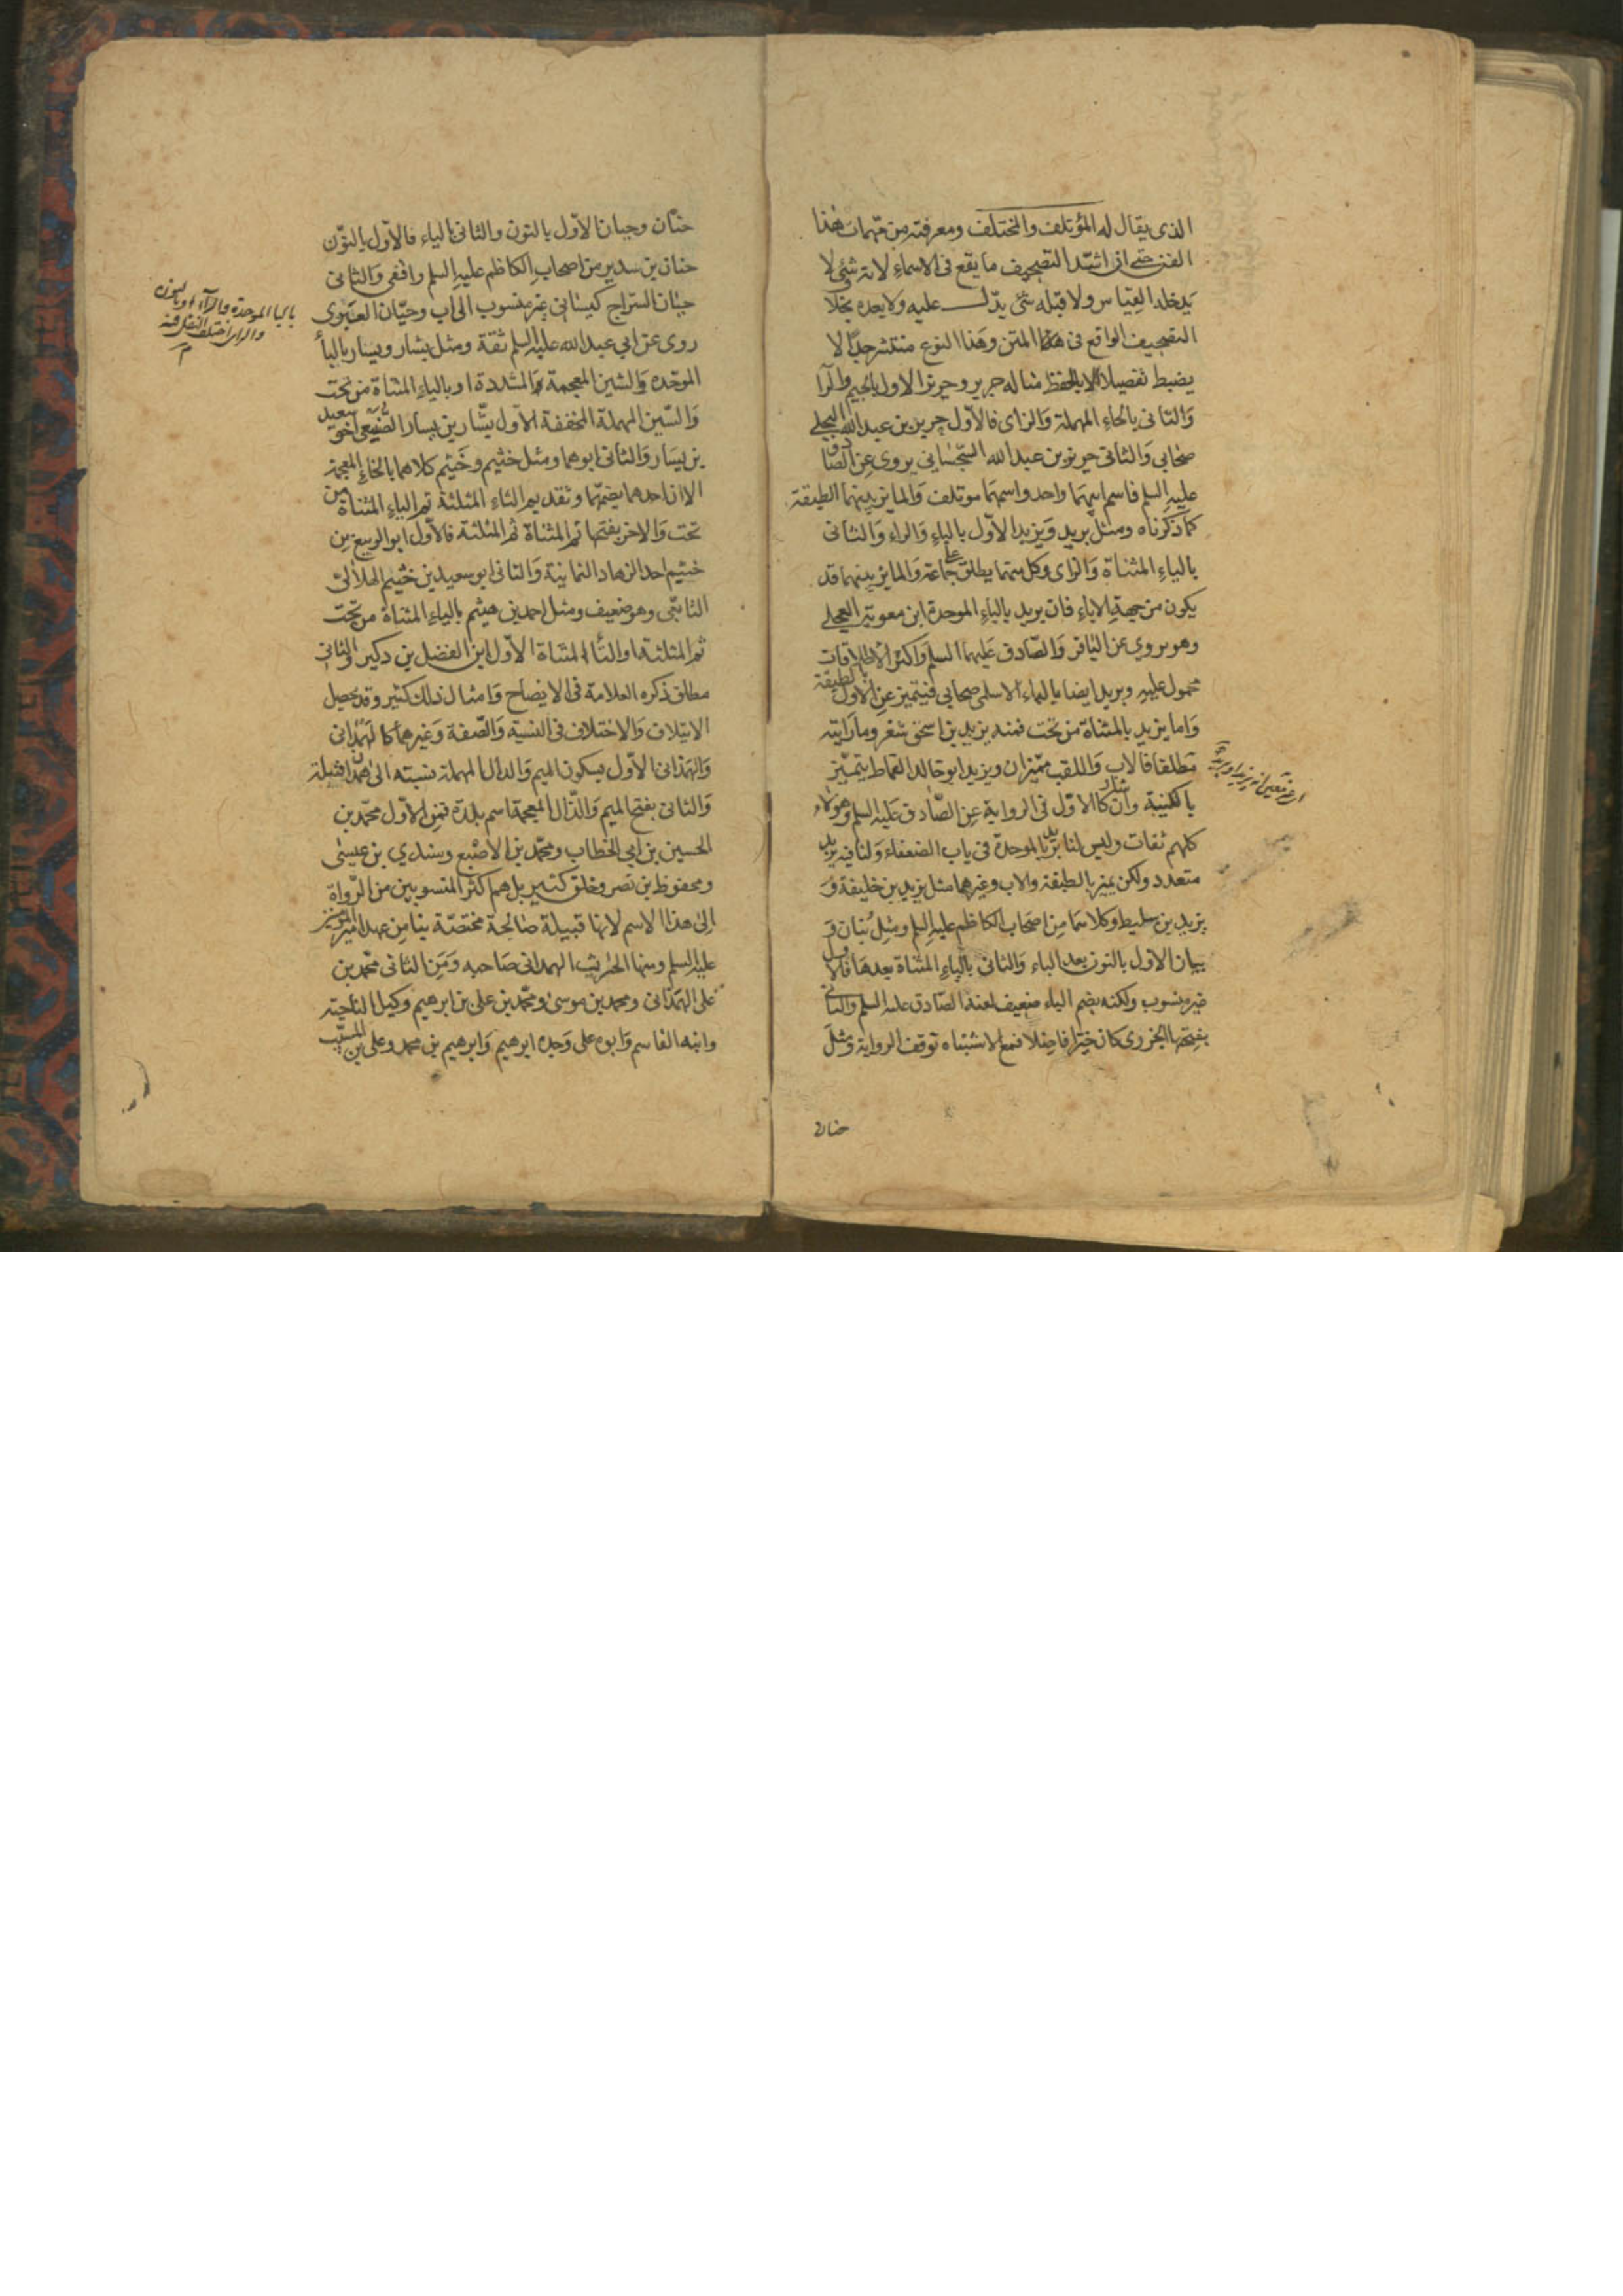 الذى يقال له المؤتلف والمختلف ومعرفته من مهمات هذا
الفن حتى ان اشد التصحيف ما يقع فى الاسماء لانه شئ لا
يدخله القياس ولا قبله شئ يدل عليه ولا بعده بخلا
التصحيف الواقع فى المتن وهذا النوع منتشر جدا لا
يضبط تفصيلا الا بالحفظ مثاله جرير وحريز الاول بالجيم والرا
والثانى بالحاء المهملة والزاى فالاول جرير بن عبد الله البجلى
صحابى والثانى حريز بن عبد الله السجستانى يروى عن الصادق
عليه السلم فاسم ابيهما واحد واسمهما موتلف والمايز بينهما الطبقة
كما ذكرناه ومثل بريد ويزيد الاول بالباء والراء والثانى
بالياء المثناة والزاى وكل منهما يطلق على جماعة والمايز بينهما قد
يكون من جهة الاباء فان بريد بالباء الموحدة ابن معوية العجلى
وهو يروى عن الباقر والصادق عليهما السلم واكثر الاطلاقات
محمول عليه وبريد ايضا بالباء الاسلمى صحابى فيتميز عن الاول بالطبقة
واما يزيد بالمثناة من تحت فمنه يزيد بن اسحق شغر وما رايته
مطلقا فالاب واللقب مميزان ويزيد ابو خالد القماط يتميز
بالكنية وان شارك الاول فى الرواية عن الصادق عليه السلم وهولاء
كلهم ثقات وليس لنا بريد بالموحدة فى باب الضعفاء ولنا فيه يزيد
متعدد ولكن يميز بالطبقة والاب وغيرهما مثل يزيد بن خليفة و
يزيد بن سليط وكلاهما من اصحاب الكاظم عليه السلم ومثل بنان و
بيان الاول بالنون بعد الباء والثانى بالياء المثناة بعدها فالاول
غير منسوب ولكنه بضم الباء ضعيف لعنه الصادق عليه السلم والثانى
بفتحها الجزرى كان خيرا فاضلا فمع الاشتباه توقف الرواية ومثل
حنان
حنان وحيان الاول بالنون والثانى بالياء فالاول بالنون
حنان بن سدير من اصحاب الكاظم عليه السلم واقفى والثانى
حيان السراج كيسانى غير منسوب الى اب وحيان العنبرى
روى عن ابى عبد الله عليه السلم ثقة ومثل بشار ويسار بالبا
الموحدة والشين المعجمة المشددة او بالياء المثناة من تحت
والسين المهملة المخففة الاول بشار بن يسار الضبيعى اخو سعيد
بن يسار والثانى ابوهما ومثل خثيم وخيثم كلاهما بالخاء المعجمة
الا ان احدهما بضمها وتقديم الثاء المثلثة ثم الياء المثناة من
تحت والاخر بفتحها ثم المثناة ثم المثلثة فالاول ابو الربيع بن
خثيم احد الزهاد الثمانية والثانى ابو سعيد بن خيثم الهلالى
التابعى وهو ضعيف ومثل احمد بن ميثم بالياء المثناة من تحت
ثم المثلثة او التاء المثناة الاول ابن الفضل بن دكين والثانى
مطلق ذكره العلامة فى الايضاح وامثال ذلك كثير وقد يحصل
الايتلاف والاختلاف فى النسبة والصفة وغيرهما كالهمدانى
والهمذانى الاول بسكون الميم والدال المهملة نسبته الى همدان قبيلة
والثانى بفتح الميم والذال المعجمة اسم بلدة فمن الاول محمد بن
الحسين بن ابى الخطاب ومحمد بن الاصبغ وسندى بن عيسى
ومحفوظ بن نصر وخلق كثير بل هم اكثر المنسوبين من الرواة
الى هذا الاسم لانها قبيلة صالحة مختصة بنا من عهد امير المؤمنين
عليه السلم ومنها الحارث الهمدانى صاحبه ومن الثانى محمد بن
على الهمذانى ومحمد بن موسى ومحمد بن على بن ابرهيم وكيل الناحية
وابنه القاسم وابوه على وجده ابرهيم وابرهيم بن محمد وعلى بن المسيب
بالبا الموحدة والرآء او بالنون
والزاى اختلف النقل فيه
م